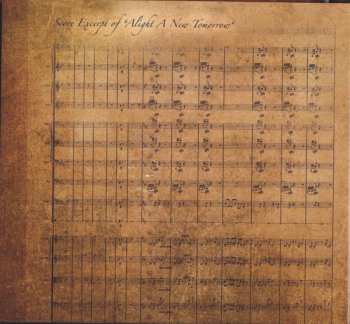 Score Excerpt of "Alight A New Tomorrow"